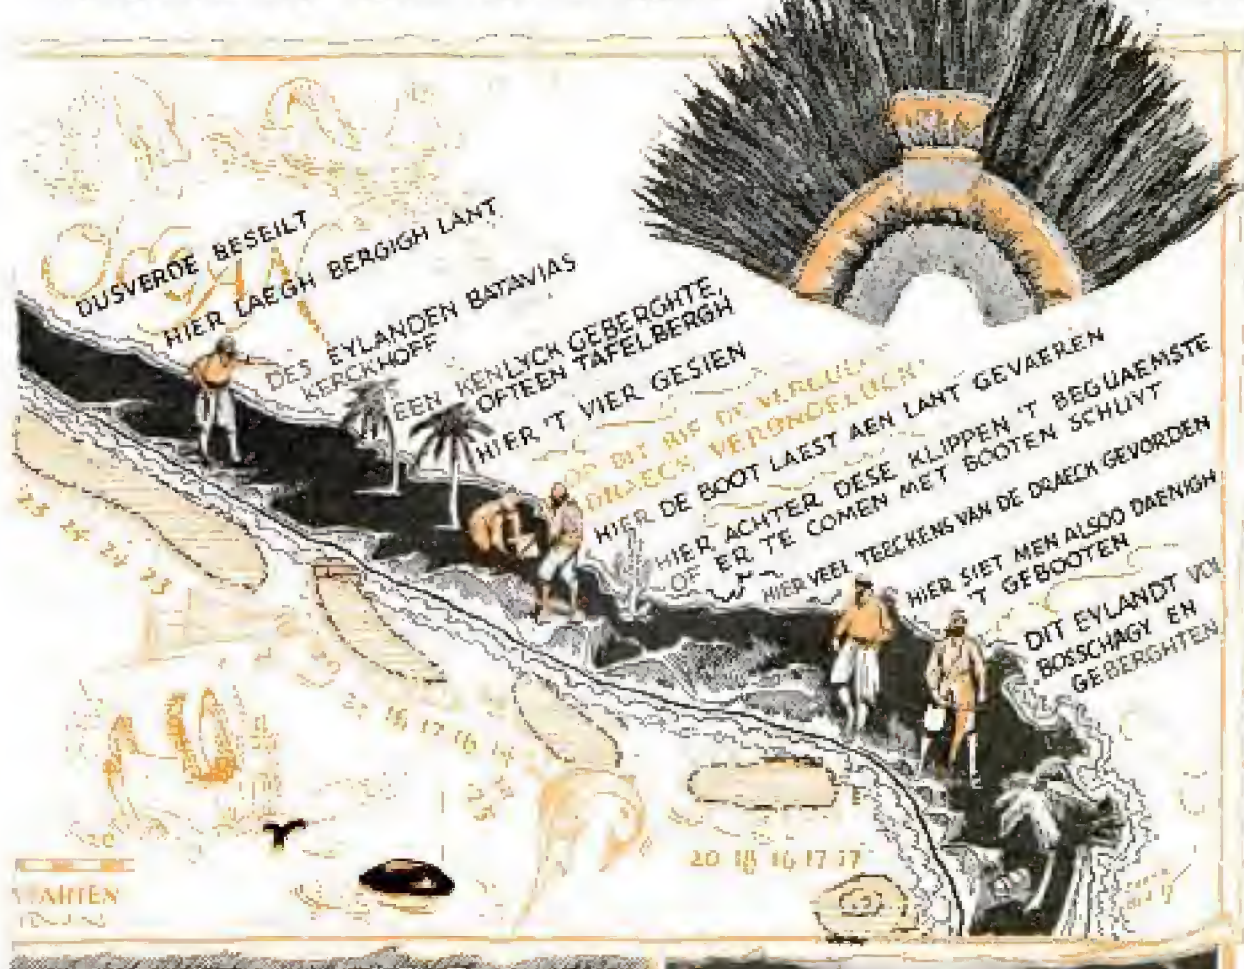 DUSVERDE BESEILT
HIER LAEGH BERGIGH LANT
DES EYLANDEN BATAVIAS
KERCKHOFF
EEN KENLYCK GEBERGHTE,
OFTEEN TAFELBERGH
HIER 'T VIER GESIEN
OP DIT RIF DE
DRAECK VERONGELUCKT
HIER DE BOOT LAEST AEN LANT GEVAEREN
HIER ACHTER DESE KLIPPEN 'T BEGUAEMSTE
OF ER TE COMEN MET BOOTEN SCHUVT
HIER VEEL TEECKENS VAN DE DRAECK GEVORDEN
HIER SIET MEN ALSOO DAENIGH
'T GEBOOTEN
DIT EYLANDT VOL
BOSSCHAGY EN
GEBERGHTEN
25 24 24 23
18 17 16
20 18 16 17 17
20